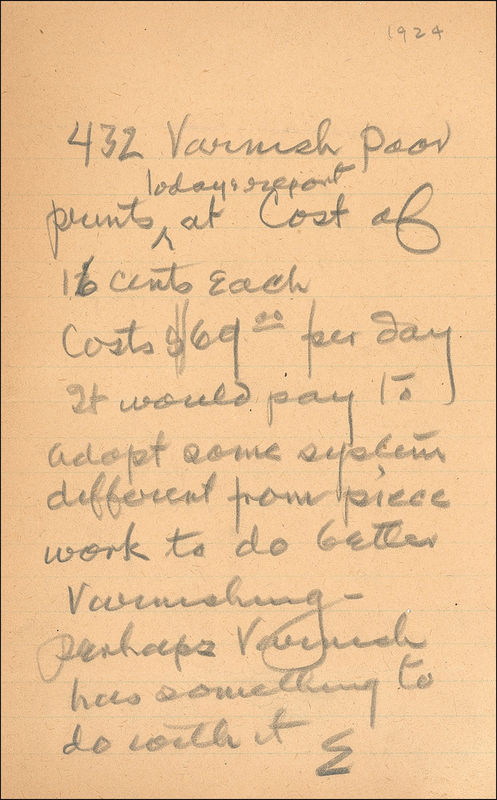 1924
432 Varnish poor
todays report
prints ^ at Cost of
16 cents Each
Costs $69.00 per day
It would pay to
adopt some system
different from piece
work to do better
Varnishing -
perhaps Varnish
has something to
do with it E